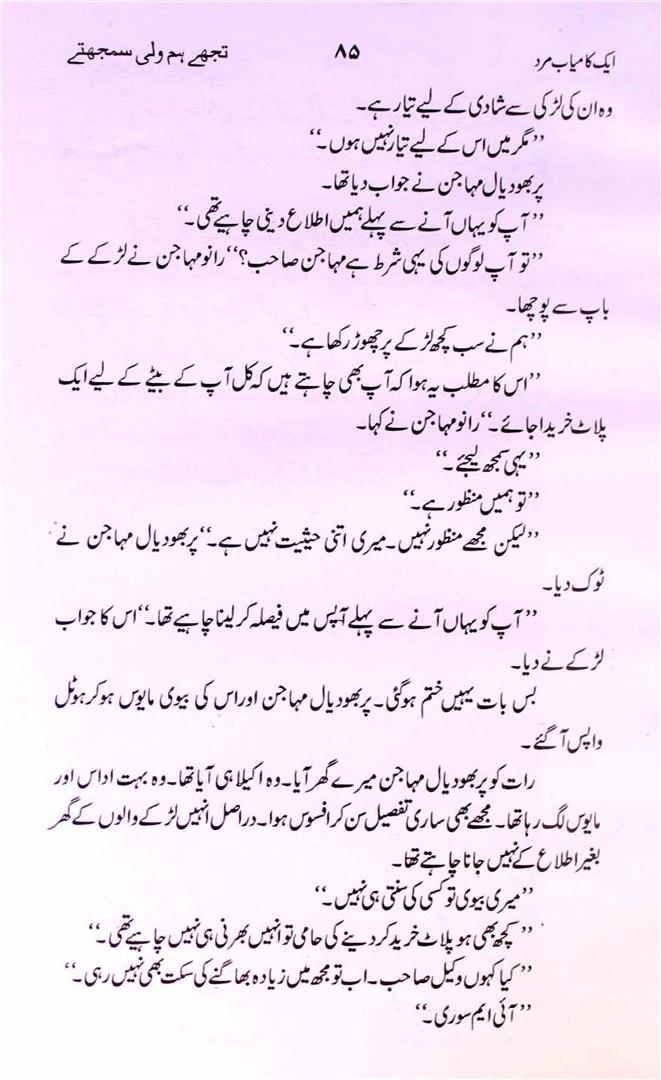 ایک کامیاب مرد ۸۵ تجھے ہم ولی سمجھتے
وہ ان کی لڑکی سے شادی کے لیے تیار ہے۔
’’مگر میں اس کے لیے تیار نہیں ہوں۔‘‘
پربھودیال مہاجن نے جواب دیا تھا۔
’’آپ کو یہاں آنے سے پہلے ہمیں اطلاع دینی چاہیے تھی۔‘‘
’’تو آپ لوگوں کی یہی شرط ہے مہاجن صاحب؟‘‘ رانو مہاجن نے لڑکے کے
باپ سے پوچھا۔
’’ہم نے سب کچھ لڑکے پر چھوڑ رکھا ہے۔‘‘
’’اس کا مطلب یہ ہوا کہ آپ بھی چاہتے ہیں کہ کل آپ کے بیٹے کے لیے ایک
پلاٹ خریدا جائے۔‘‘ رانو مہاجن نے کہا۔
’’یہی سمجھ لیجئے۔‘‘
’’تو ہمیں منظور ہے۔‘‘
’’لیکن مجھے منظور نہیں۔ میری اتنی حیثیت نہیں ہے۔‘‘ پربھودیال مہاجن نے
ٹوک دیا۔
’’آپ کو یہاں آنے سے پہلے آپس میں فیصلہ کر لینا چاہیے تھا۔‘‘ اس کا جواب
لڑکے نے دیا۔
بس بات یہیں ختم ہوگئی۔ پربھودیال مہاجن اور اس کی بیوی مایوس ہوکر ہوٹل
واپس آگئے۔
رات کو پربھودیال مہاجن میرے گھر آیا۔ وہ اکیلا ہی آیا تھا۔ وہ بہت اداس اور
مایوس لگ رہا تھا۔ مجھے بھی ساری تفصیل سن کر افسوس ہوا۔ دراصل انہیں لڑکے والوں کے گھر
بغیر اطلاع کے نہیں جانا چاہتے تھا۔
’’میری بیوی تو کسی کی سنتی ہی نہیں۔‘‘
’’کچھ بھی ہو پلاٹ خرید کر دینے کی حامی تو انہیں بھرنی ہی نہیں چاہیے تھی۔‘‘
’’کیا کہوں وکیل صاحب۔ اب تو مجھ میں زیادہ بھاگنے کی سکت بھی نہیں رہی۔‘‘
’’آئی ایم سوری۔‘‘